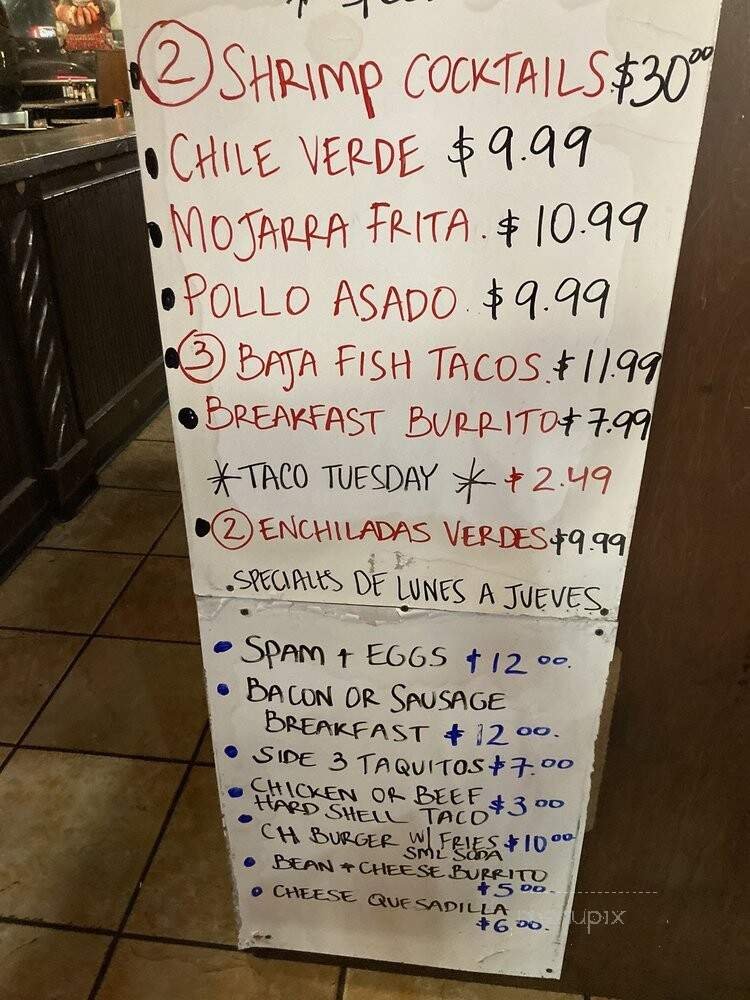 2 SHRIMP COCKTAILS $30.00
CHILE VERDE $9.99
MOJARRA FRITA. $10.99
POLLO ASADO. $9.99
3 BAJA FISH TACOS. $11.99
BREAKFAST BURRITO $7.99
*TACO TUESDAY * $2.49
2 ENCHILADAS VERDES $9.99
.SPECIALES DE LUNES A JUEVES.
SPAM + EGGS $12 00.
BACON OR SAUSAGE
BREAKFAST $12 00.
SIDE 3 TAQUITOS $7.00
CHICKEN OR BEEF
HARD SHELL TACO $3 00
CH BURGER W/ FRIES $10 00
SML SODA
BEAN + CHEESE BURRITO
$5 00
CHEESE QUESADILLA
$6 00.